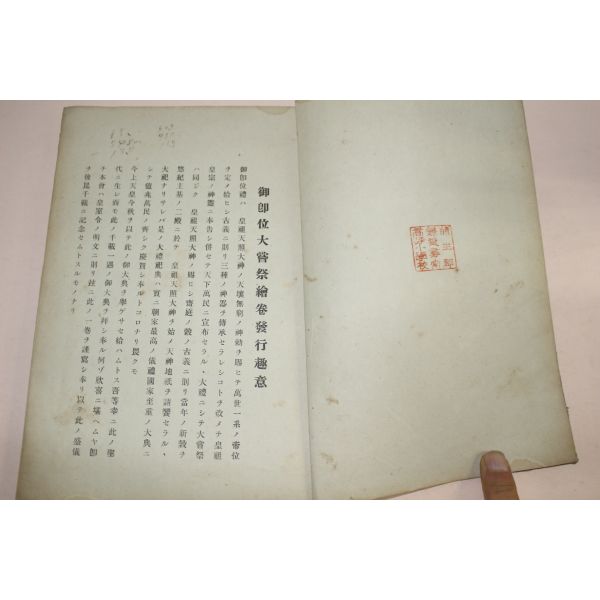 御卽位大嘗祭繪卷發行趣意
御卽位禮ハ　皇祖天照大神ノ天壤無窮ノ神勅ヲ賜ヒテ萬世一系ノ帝位
ヲ定メ給ヒシ古義ニ則リ三種ノ神器ヲ傳承セラレシコトヲ改メテ皇祖
皇宗ノ神靈ニ本告シ併セテ天下萬民ニ宣布セラル、大禮ニシテ大嘗祭
ハ同ジク　皇祖天照大神ノ賜ヒシ齋庭ノ穀ノ古義ニ則リ當年ノ新穀ヲ
悠紀主基ノ二殿ニ於テ　皇祖天照大神ヲ始メ天神地祇ヲ請饗セラル、
大祀ナリサレバ是ノ大禮祀典ハ實ニ朝家最高ノ儀禮國家至重ノ大典ニ
シテ億兆萬民ノ齊シク慶賀シ奉ルトコロナリ畏クモ
今上天皇今秋ヲ以テ此ノ御大典ヲ擧ゲサセ給ハムトス吾等幸ニ此ノ聖
代ニ生レ而モ此ノ千載一遇ノ御大典ヲ拜シ奉ル何ゾ欣喜ニ堪ヘムヤ卽
チ本會ハ皇室令ノ明文ニ則リ玆ニ此ノ一卷ヲ謹寫シ奉リ以テ此ノ盛儀
ヲ後昆千載ニ記念セムトスルモノナリ